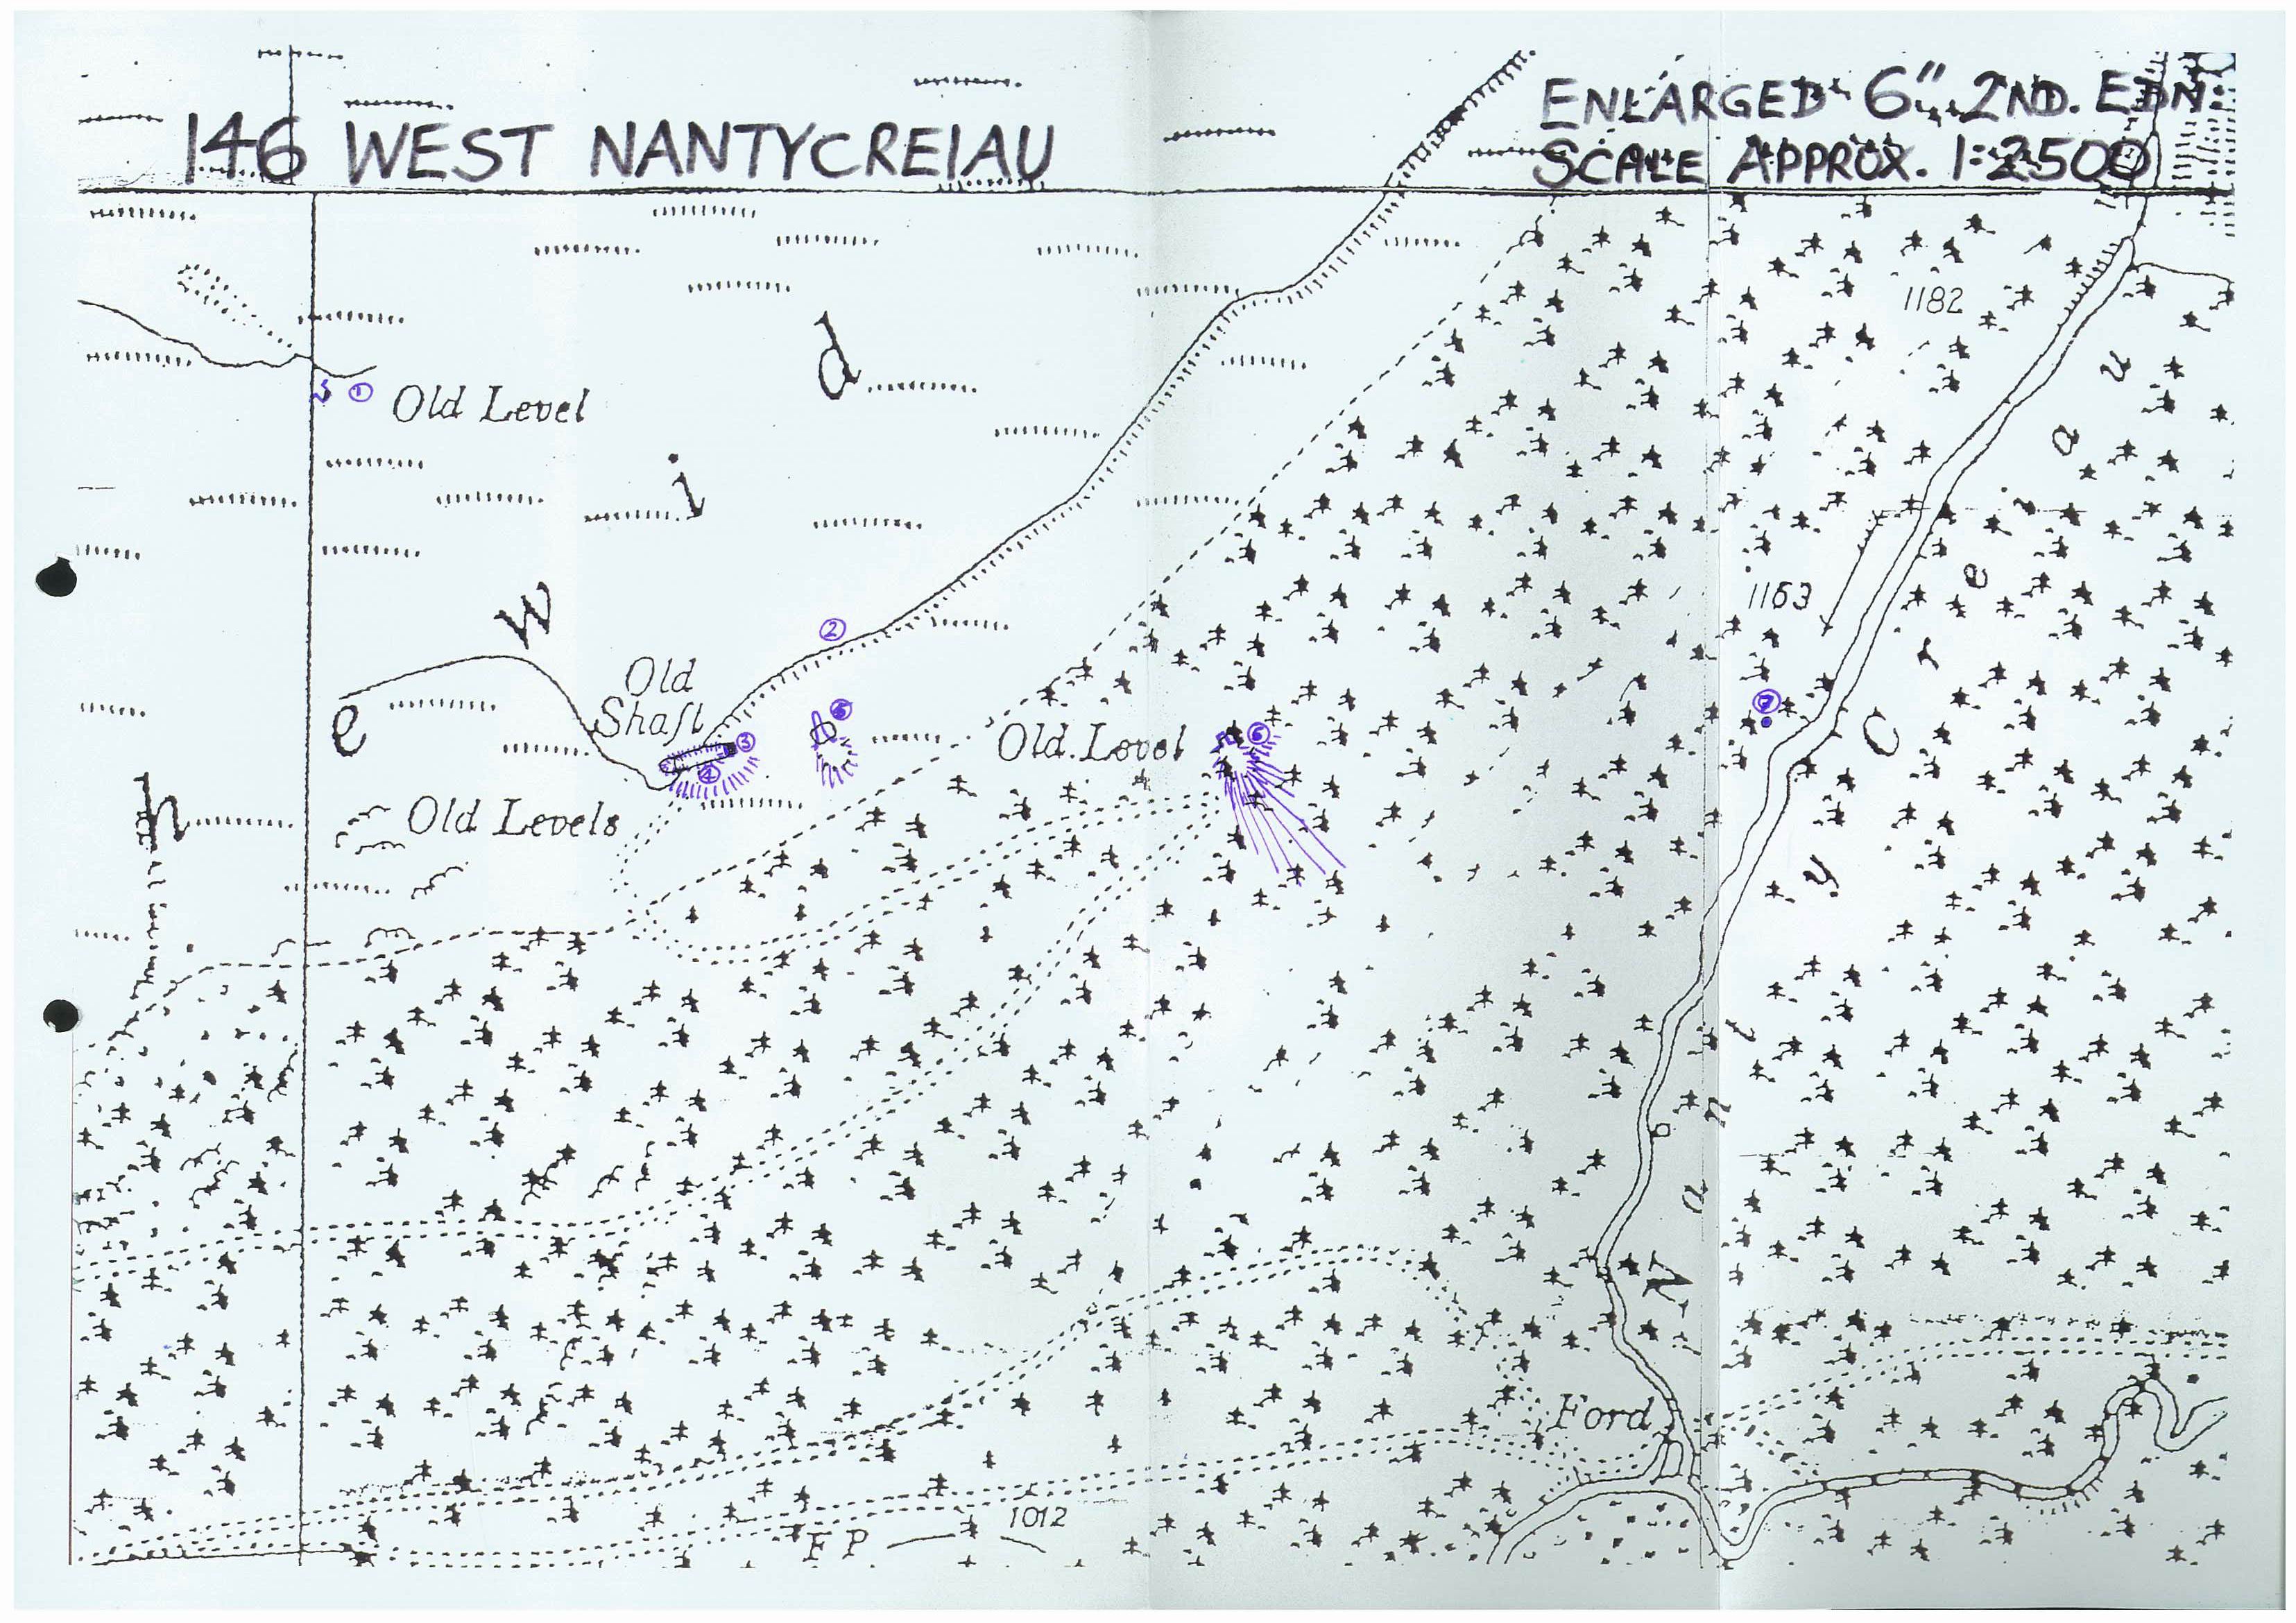 146 WEST NANTYCREIAU
ENLARGED 6" 2ND. EDN.
SCALE APPROX. 1:2500
1182
① Old Level
d
i
w
e
n
1163
②
Old
Shaft
③
④
⑤
Old Level
⑥
⑦
Old Levels
Nant y Creiau
Ford
1012
F P